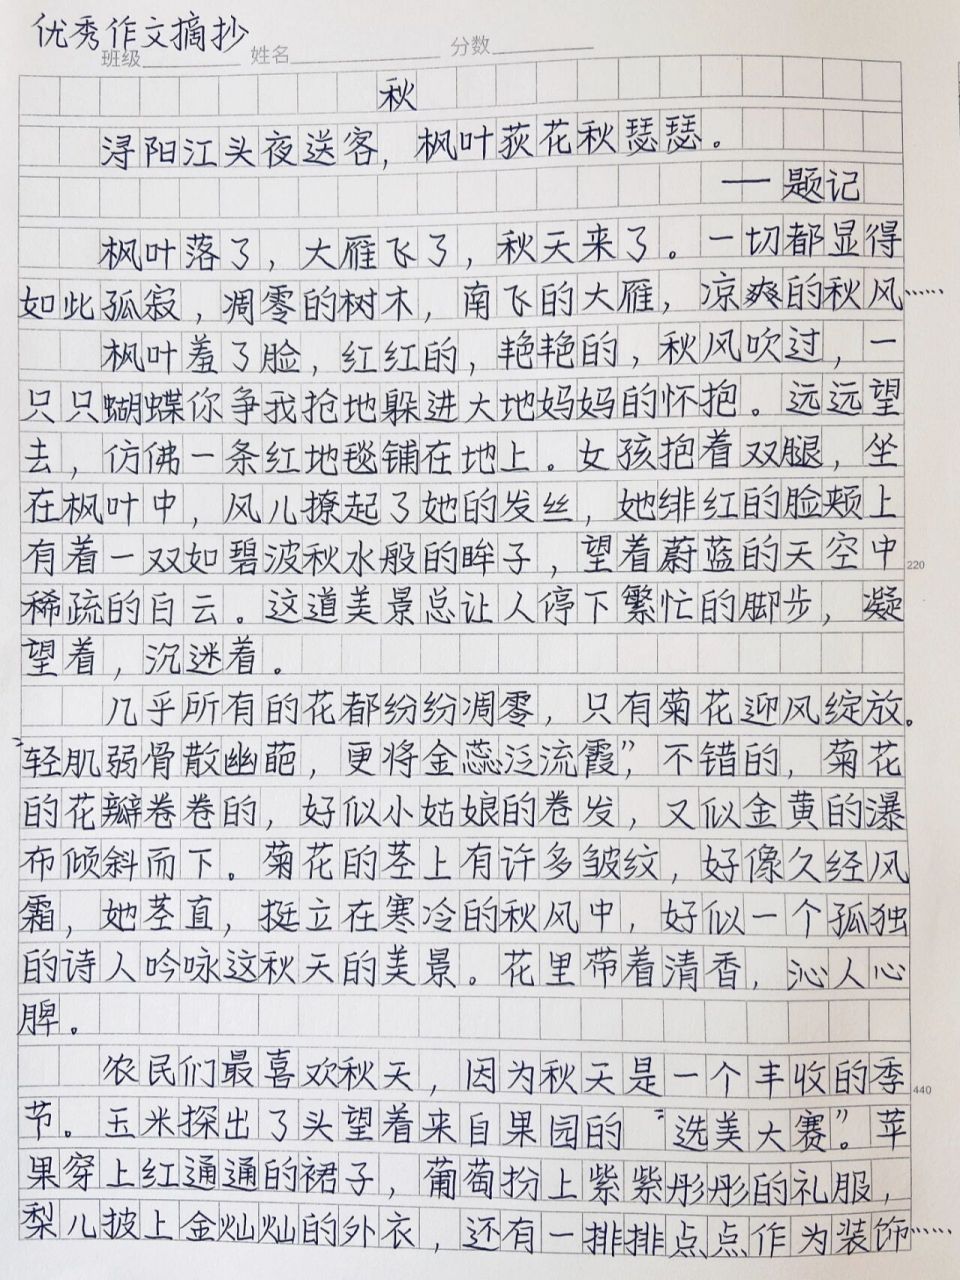 优秀作文摘抄
班级 姓名 分数
秋
浔阳江头夜送客，枫叶荻花秋瑟瑟。
——题记
枫叶落了，大雁飞了，秋天来了。一切都显得
如此孤寂，凋零的树木，南飞的大雁，凉爽的秋风……
枫叶羞了脸，红红的，艳艳的，秋风吹过，一
只只蝴蝶你争我抢地躲进大地妈妈的怀抱。远远望
去，仿佛一条红地毯铺在地上。女孩抱着双腿，坐
在枫叶中，风儿撩起了她的发丝，她绯红的脸颊上
有着一双如碧波秋水般的眸子，望着蔚蓝的天空中
220
稀疏的白云。这道美景总让人停下繁忙的脚步，凝
望着，沉迷着。
几乎所有的花都纷纷凋零，只有菊花迎风绽放。
“轻肌弱骨散幽葩，更将金蕊泛流霞”，不错的，菊花
的花瓣卷卷的，好似小姑娘的卷发，又似金黄的瀑
布倾斜而下。菊花的茎上有许多皱纹，好像久经风
霜，她茎直，挺立在寒冷的秋风中，好似一个孤独
的诗人吟咏这秋天的美景。花里带着清香，沁人心
脾。
农民们最喜欢秋天，因为秋天是一个丰收的季
440
节。玉米探出了头望着来自果园的“选美大赛”。苹
果穿上红通通的裙子，葡萄扮上紫紫彤彤的礼服，
梨儿披上金灿灿的外衣，还有一排排点点作为装饰……